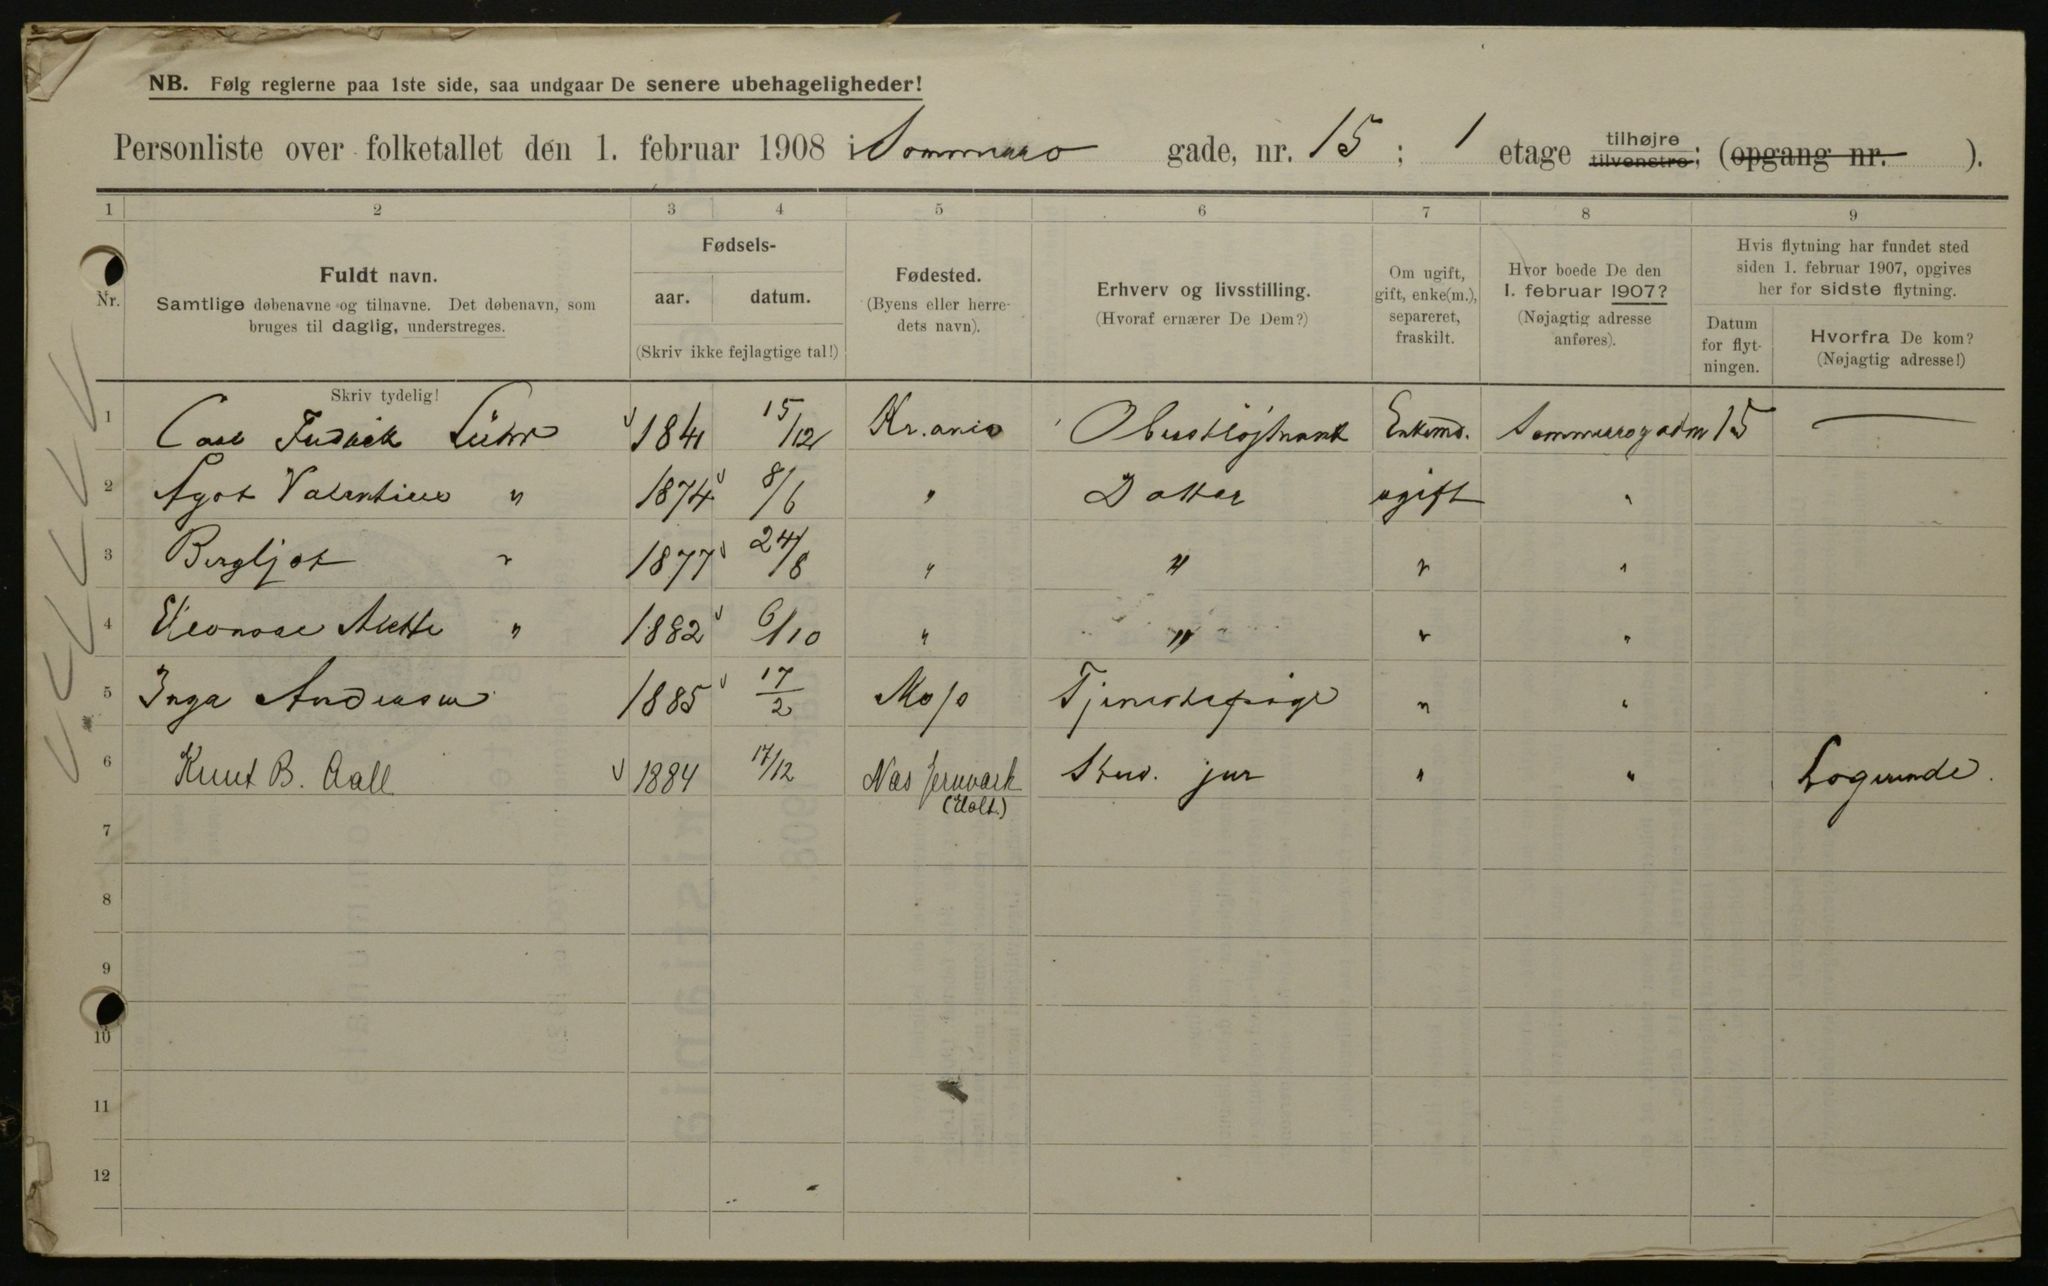 NB. Følg reglerne paa 1ste side, saa undgaar De senere ubehageligheder!
Personliste over folketallet den 1. februar 1908 i Sommerro gade, nr. 15 ; 1 etage tilhøjre tilvenstre; (opgang nr. ).
1 2 3 4 5 6 7 8 9
Nr.
Fuldt navn.
Samtlige døbenavne og tilnavne. Det døbenavn, som
bruges til daglig, understreges.
Skriv tydelig!
Fødsels-
aar. datum.
(Skriv ikke fejlagtige tal!)
Fødested.
(Byens eller herre-
dets navn).
Erhverv og livsstilling.
(Hvoraf ernærer De Dem?)
Om ugift,
gift, enke(m.),
separeret,
fraskilt.
Hvor boede De den
1. februar 1907?
(Nøjagtig adresse
anføres).
Hvis flytning har fundet sted
siden 1. februar 1907, opgives
her for sidste flytning.
Datum
for flyt-
ningen.
Hvorfra De kom?
(Nøjagtig adresse!)
1 Carl Fredrik Lühr 1841 15/12 Kr.ania Oberstløjtnant Enkemd. Sommerrogaden 15 —
2 Agot Valentine " 1874 8/6 " Datter ugift "
3 Bergljot " 1877 24/8 " " " "
4 Eleonore Alette " 1882 6/10 " " " "
5 Inga Andersen 1885 17/2 Moss Tjenestepige " "
6 Knut B. Aall 1884 17/12 Næs Jernværk (Holt.) Stud. jur " " Logerende.
7
8
9
10
11
12